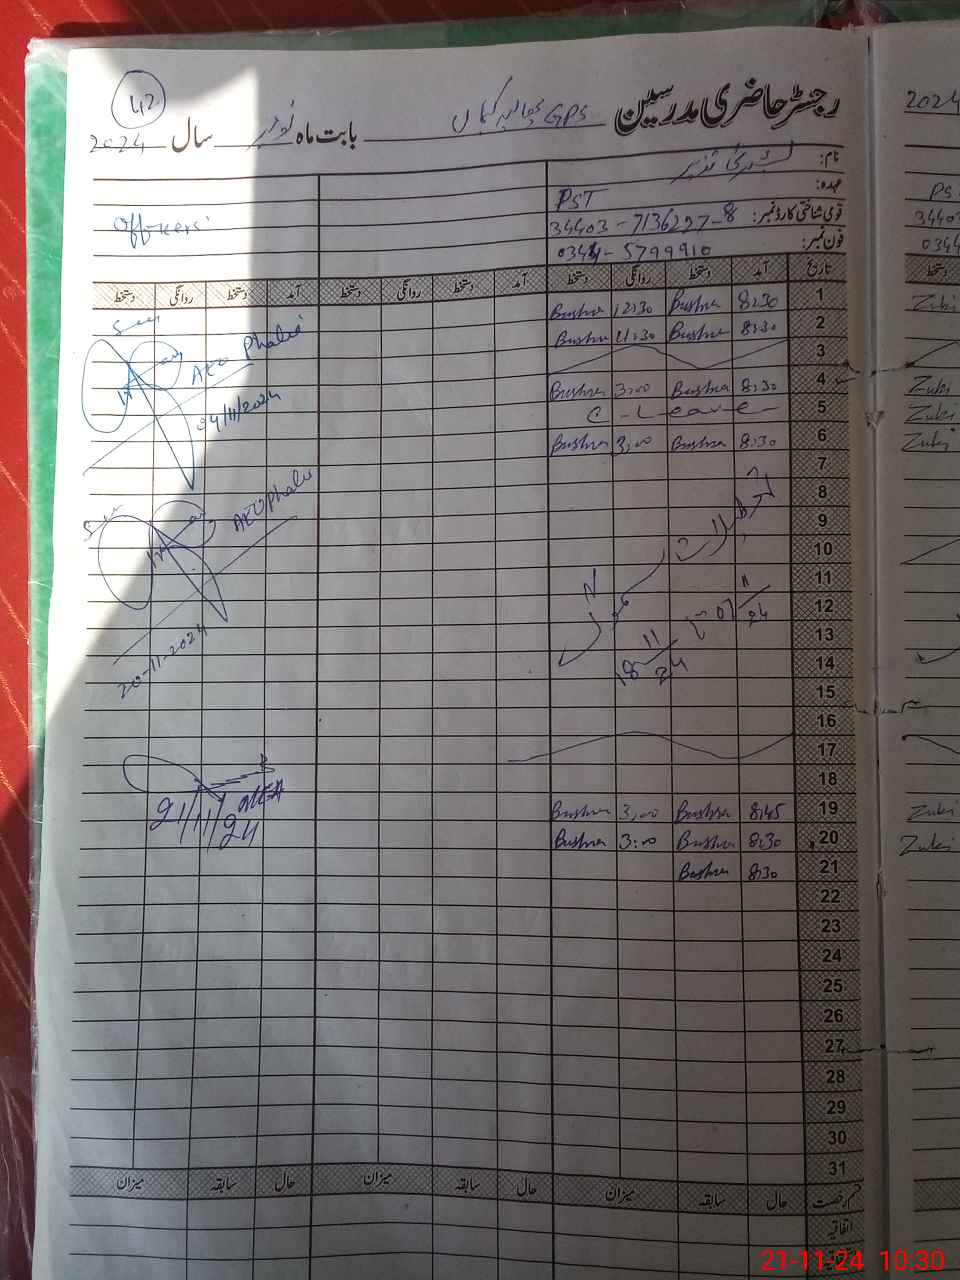 42
رجسٹر حاضری مدرسین GPS بابت ماہ نومبر سال 2024
نام: بشریٰ نذیر
عہدہ: PST
قومی شناختی کارڈ نمبر: 34403-7136297-8
فون نمبر: 0344-5799910
Officers
تاریخ آمد دستخط روانگی دستخط آمد دستخط روانگی دستخط آمد دستخط روانگی دستخط
1 8:30 Bushra 12:30 Bushra
2 8:30 Bushra 11:30 Bushra
3
4 8:30 Bushra 3:00 Bushra
5 C-Leave
6 8:30 Bushra 3:00 Bushra
7
8
9
10
11
12
13
14
15
16
17
18
19 8:45 Bushra 3:00 Bushra
20 8:30 Bushra 3:00 Bushra
21 8:30 Bushra
22
23
24
25
26
27
28
29
30
31
تعطیلات
07/11/24
18/11/24
AEO Phalia
04/11/2024
AEO Phalia
20-11-2024
MEA
21/11/24
قسم رخصت حال سابقہ میزان حال سابقہ میزان حال سابقہ میزان
اتفاقیہ
2024
PST
34403
0344
دستخط
Zubi
Zubi
Zubi
Zubi
Zubi
Zubi
21-11-24 10:30